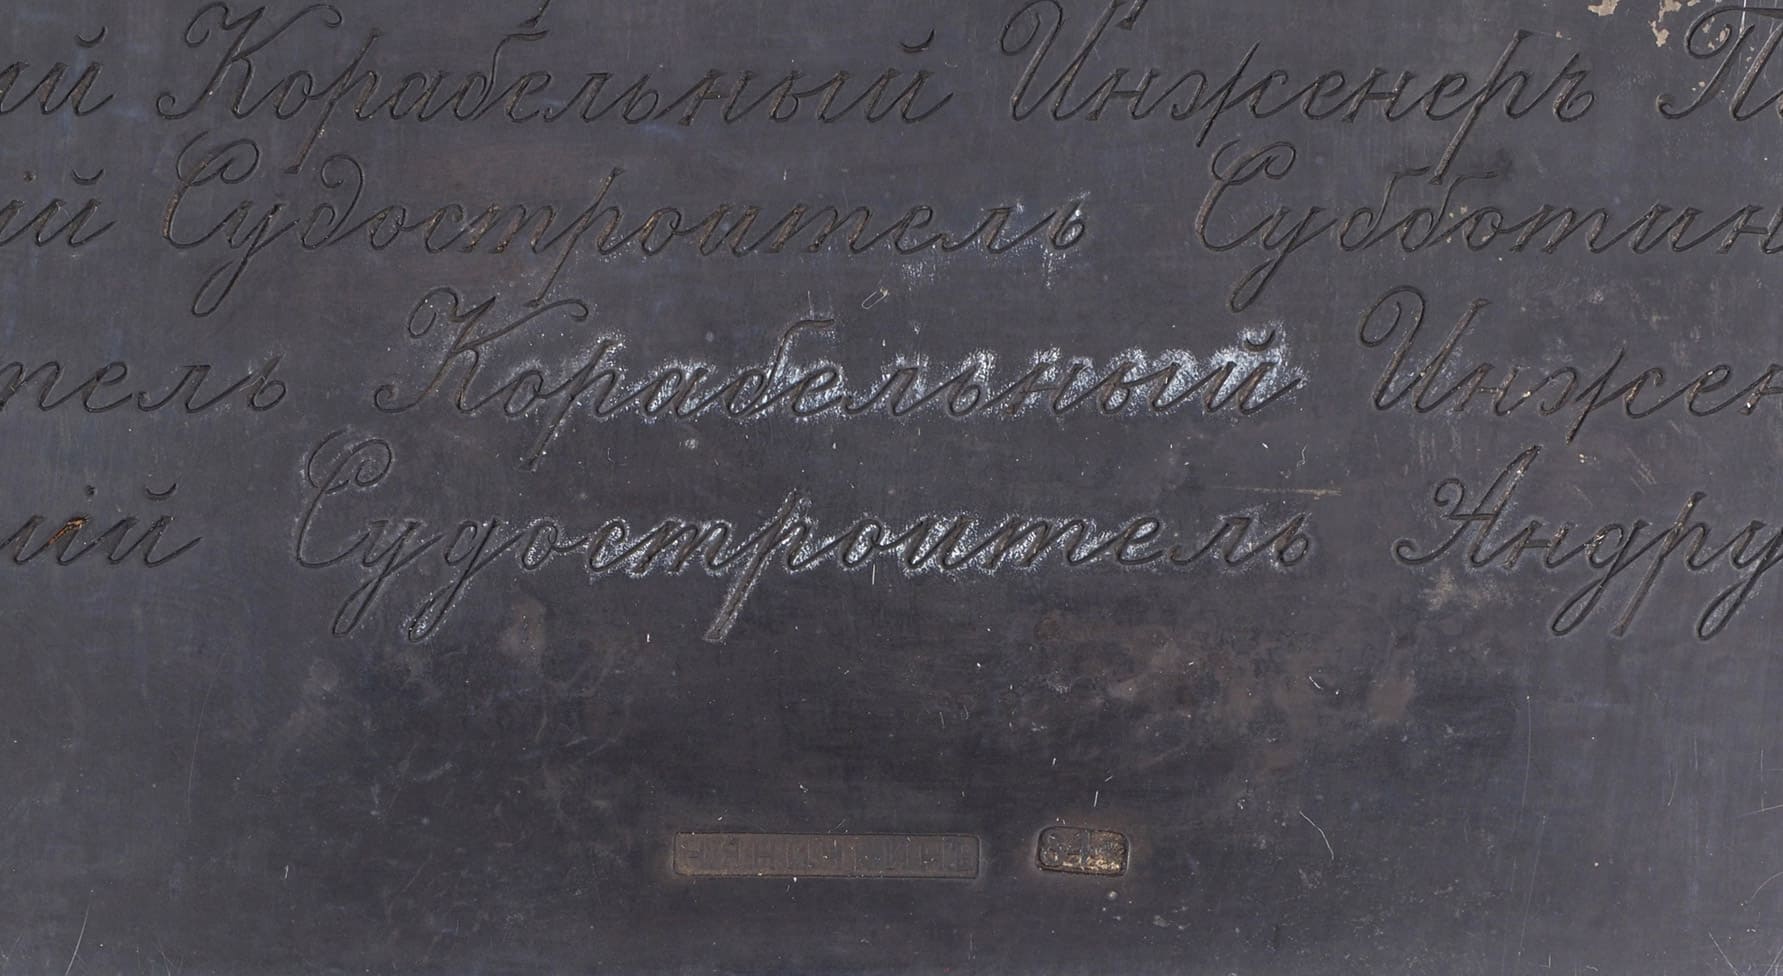 ий Корабельный Инженеръ П
ій Судостроитель Субботин
тель Корабельный Инжен
шій Судостроитель Андру
84